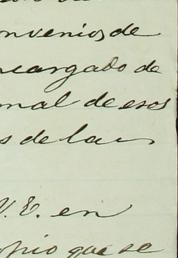 nvenios de
ncargado de
mal de esos
s de las
V. E. en
opio que se